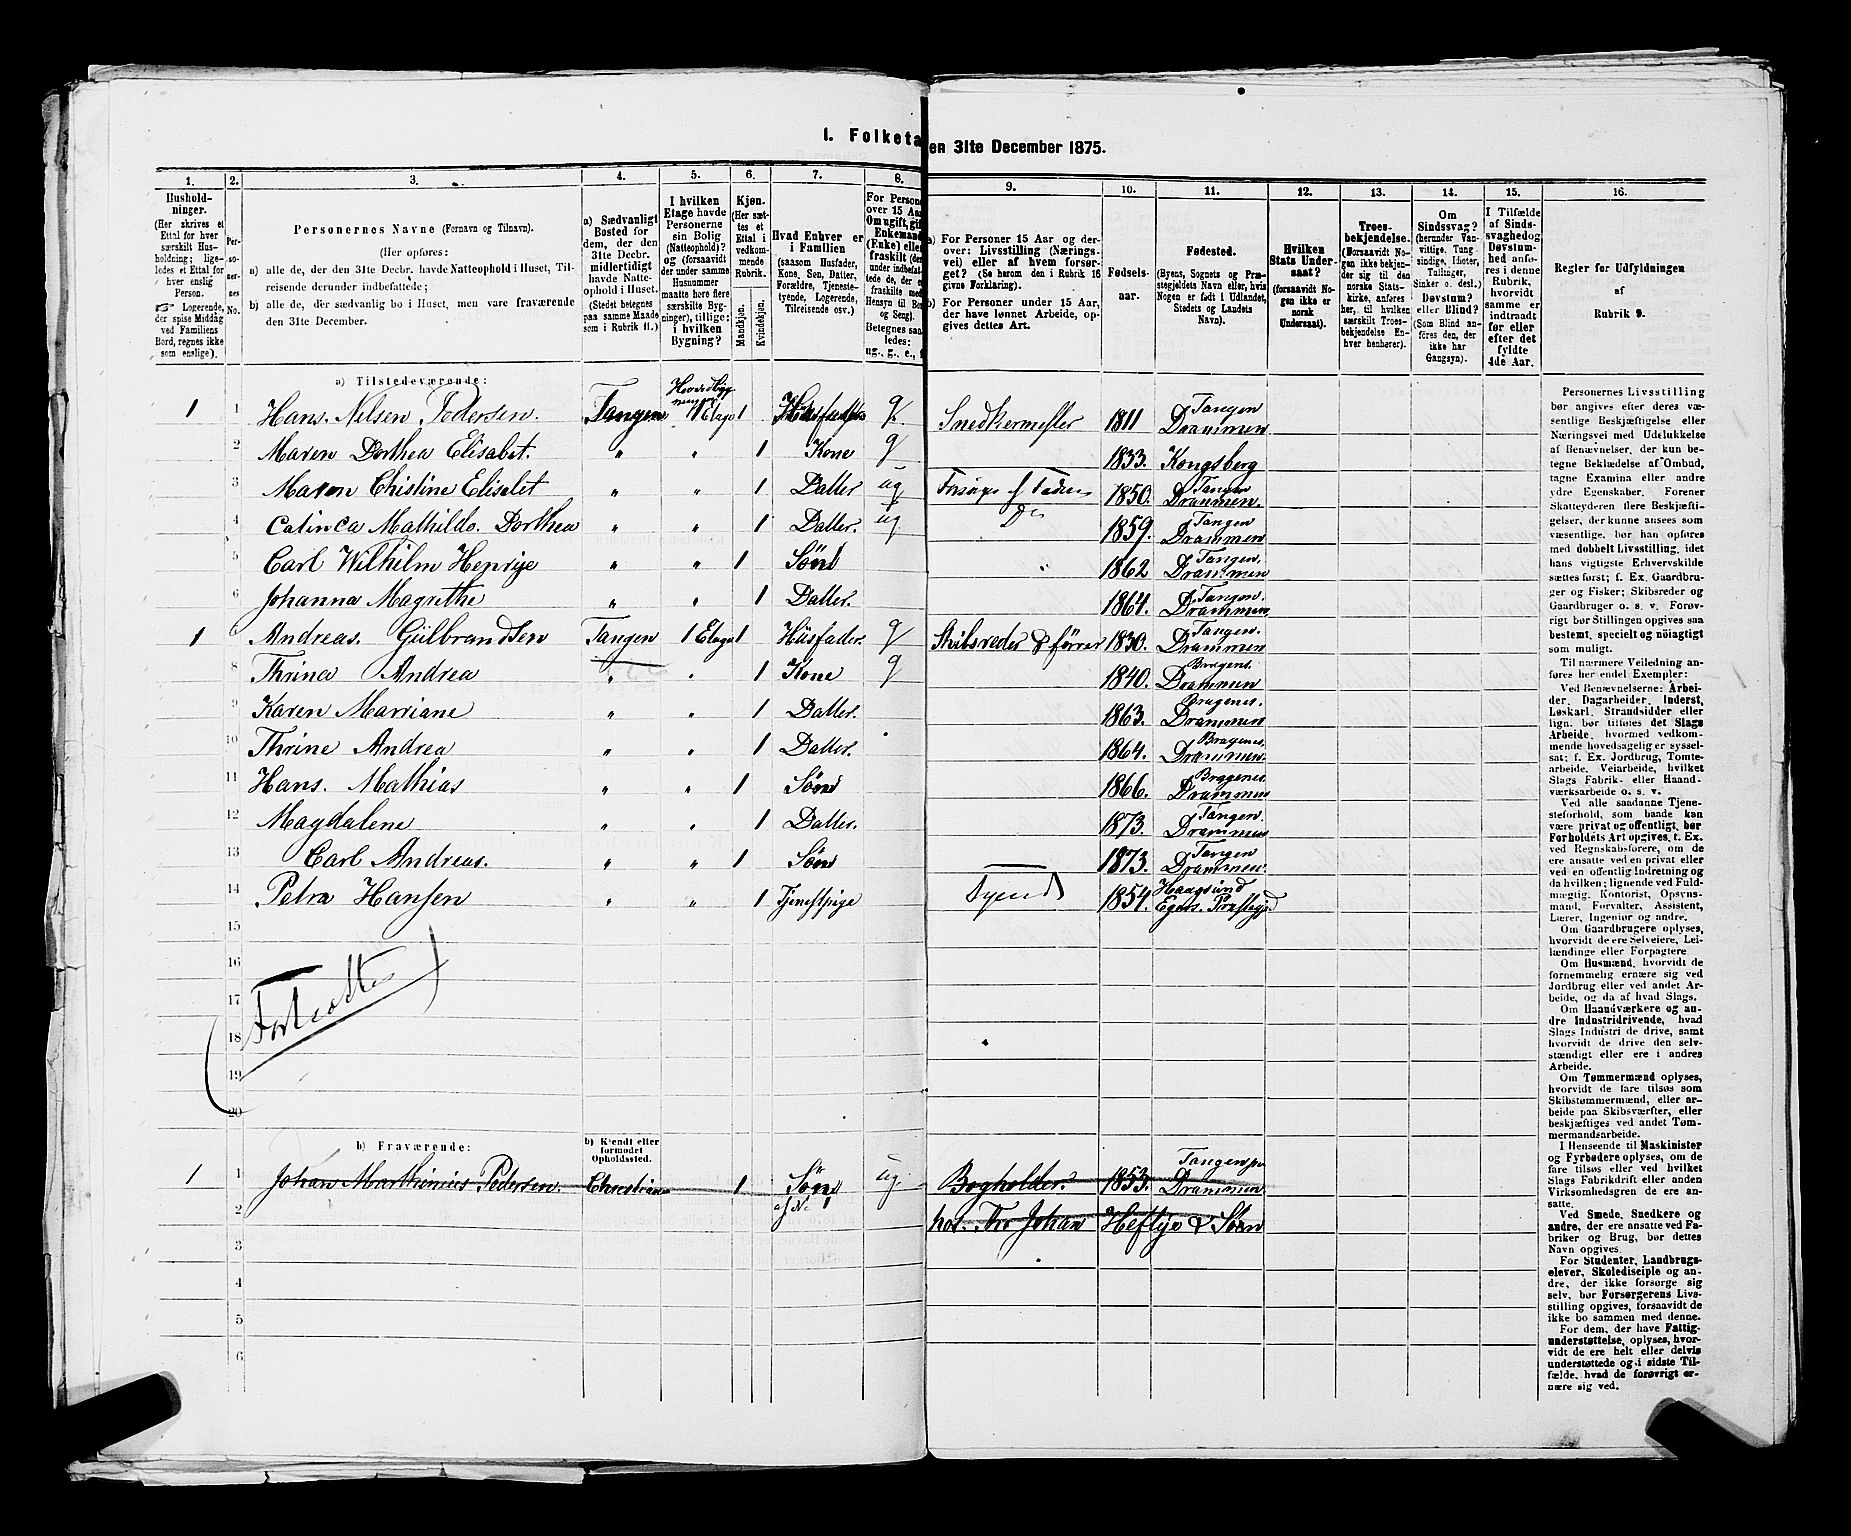 I. Folketa en 31te December 1875.
1. 2. 3. 4. 5. 6. 7. 8. 9. 10. 11. 12. 13. 14. 15. 16.
Hushold-
ninger.
(Her skrives et
Ettal for hver
særskilt Hus-
holdning; lige-
ledes et Ettal for
hver enslig
Person.
Logerende,
der spise Middag
ved Familiens
Bord, regnes ikke
som enslige).
Per-
so-
ner-
nes
No.
Personernes Navne (Fornavn og Tilnavn).
(Her opføres:
a) alle de, der den 31te Decbr. havde Natteophold i Huset, Til-
reisende derunder indbefattede;
b) alle de, der sædvanlig bo i Huset, men vare fraværende
den 31te December.
a) Sædvanligt
Bosted for
dem, der den
31te Decbr.
midlertidigt
havde Natte-
ophold i Huset.
(Stedet betegnes
paa samme Maade
som i Rubrik 11.)
I hvilken
Etage havde
Personerne
sin Bolig
(Natteophold)?
og (forsaavidt
der under samme
Husnummer
maatte høre flere
særskilte Byg-
ninger), tillige:
i hvilken
Bygning?
Kjøn.
(Her sæt-
tes et
Ettal i
vedkom-
mende
Rubrik.
Mandkjøn.
Kvindekjøn.
Hvad Enhver er
i Familien
(saasom Husfader,
Kone, Søn, Datter,
Forældre, Tjeneste-
tyende, Logerende,
Tilreisende osv.)
For Persone
over 15 Aar
Om ugift, gift
Enkemand
(Enke) eller
fraskilt (der
under indbefat-
tede de, der er
fraskilte med
Hensyn til Bor
og Seng).
Betegnes saa-
ledes:
ug., g., e., f
a) For Personer 15 Aar og der-
over: Livsstilling (Nærings-
vei) eller af hvem forsør-
get? (Se herom den i Rubrik 16
givne Forklaring).
b) For Personer under 15 Aar,
der have lønnet Arbeide, op-
gives dettes Art.
Fødsels-
aar.
Fødested.
(Byens, Sognets og Præ-
stegjeldets Navn eller, hvis
Nogen er født i Udlandet,
Stedets og Landets
Navn).
Hvilken
Stats Under-
saat?
(forsaavidt No-
gen ikke er
norsk
Undersaat).
Troes-
bekjendelse.
(Forsaavidt No-
gen ikke bekjen-
der sig til den
norske Stats-
kirke, anføres
her, til hvilken
særskilt Troes-
bekjendelse En-
hver henhører).
Om
Sindssvag?
(herunder Van-
vittige, Tung-
sindige, Idioter,
Tullinger,
Sinker o. desl.)
Døvstum?
eller Blind?
(Som Blind an-
føres den, der
ikke har
Gangsyn).
I Tilfælde
af Sinds-
svaghed og
Døvstum-
hed anfø-
res i denne
Rubrik,
hvorvidt
samme er
indtraadt
før eller
efter det
fyldte
4de Aar.
Regler for Udfyldningen
af
Rubrik 9.
a) Tilstedeværende:
1 1 Hans. Nilsen Pedersen. Tangen 1 Etage 1 Husfader g. Snedkermester 1811 Tangen Drammen
2 Maren Dorthea Elisabet. " " 1 Kone g 1833. Kongsberg
3 Maren Chistine Elisabet " " 1 Datter ug 1850. Tangen Drammen
4 Catinca Mathilde. Dorthea " " 1 Datter. ug Do 1859. Tangen Drammen
5 Carl Wilhilm Henrije " " 1 Søn 1862 Tangen. Drammen
6 Johanna Magrethe " " 1 Datter. 1864. Tangen. Drammen
1 Andreas. Gulbrandsen Tangen 1 Etage 1 Husfader. g Skibsreder & fører 1830. Tangen. Drammen
8 Thrina Andrea " " 1 Kone g 1840. Bragens. Drammen
9 Karen Marriane " " 1 Datter. 1863. Bragenes. Drammen
10 Thrine Andrea " " 1 Datter. 1864. Bragenes. Drammen.
11 Hans. Mathias " " 1 Søn 1866. Bragenes. Drammen
12 Magdalene " " 1 Datter. 1873. Tangen. Drammen
13 Carl Andreas. " " 1 Søn 1873. Tangen Drammen.
14 Petra Hansen " " 1 Tjenestpige Tyende 1854. Haagsund Egers. Præstegjd
15
16
17
(Fortsatte)
18
19
20
b) Fraværende:
b) Kjendt eller
formodet
Opholdssted.
1 1 Johan Marthinius Pedersen. Christiania 1 Søn ug. Bogholder. 1853. Tangen pr Drammen.
2 af No 1 hos. Tho Johan Heftye & Søn
3
4
5
6
Personernes Livsstilling
bør angives efter deres væ-
sentlige Beskjæftigelse eller
Næringsvei med Udelukkelse
af Benævnelser, der kun be-
tegne Beklædelse af Ombud,
tagne Examina eller andre
ydre Egenskaber. Forener
Skatteyderen flere Beskjæfti-
gelser, der kunne ansees som
væsentlige, bør han opføres
med dobbelt Livsstilling, idet
hans vigtigste Erhvervskilde
sættes først; f. Ex. Gaardbru-
ger og Fisker; Skibsreder og
Gaardbruger o. s. v. Forøv-
rigt bør Stillingen opgives saa
bestemt, specielt og nöiagtigt
som muligt.
Til nærmere Veiledning an-
føres her endel Exempler:
Ved Benævnelserne: Arbei-
der, Dagarbeider, Inderst,
Løskarl, Strandsidder eller
lign. bør tilføies det Slags
Arbeide, hvormed vedkom-
mende hovedsagelig er syssel-
sat; f. Ex. Jordbrug, Tomte-
arbeide, Veiarbeide, hvilket
Slags Fabrik- eller Haand-
værksarbeide o. s. v.
Ved alle saadanne Tjene-
steforhold, som baade kan
være privat og offentligt, bør
Forholdets Art opgives, t. Ex.
ved Regnskabsførere, om de
ere ansatte ved en privat eller
en offentlig Indretning og
da hvilken; lignende ved Fuld-
mægtig, Kontorist, Opsyns-
mand, Forvalter, Assistent,
Lærer, Ingeniør og andre.
Om Gaardbrugere oplyses,
hvorvidt de ere Selveiere, Lei-
lændinge eller Forpagtere.
Om Husmænd, hvorvidt de
fornemmelig ernære sig ved
Jordbrug eller ved andet Ar-
beide, og da af hvad Slags.
Om Haandværkere og an-
dre Industridrivende, hvad
Slags Industri de drive, samt
hvorvidt de drive den selv-
stændigt eller ere i andres
Arbeide.
Om Tømmermænd oplyses,
hvorvidt de fare tilsøs som
Skibstømmermænd, eller ar-
beide paa Skibsværfter, eller
beskjæftiges ved andet Tøm-
mermandsarbeide.
I Henseende til Maskinister
og Fyrbødere oplyses, om de
fare tilsøs eller ved hvilket
Slags Fabrikdrift eller anden
Virksomhedsgren de ere an-
satte.
Ved Smede, Snedkere og
andre, der ere ansatte ved Fa-
briker og Brug, bør dettes
Navn opgives.
For Studenter, Landbrugs-
elever, Skoledisciple og an-
dre, der ikke forsørge sig
selv, bør Forsørgerens Livs-
stilling opgives, forsaavidt de
ikke bo sammen med denne.
For dem, der have Fattig-
understøttelse, oplyses, hvor-
vidt de ere helt eller delvis
understøttede og i sidste Til-
fælde, hvad de forøvrigt er-
nære sig ved.